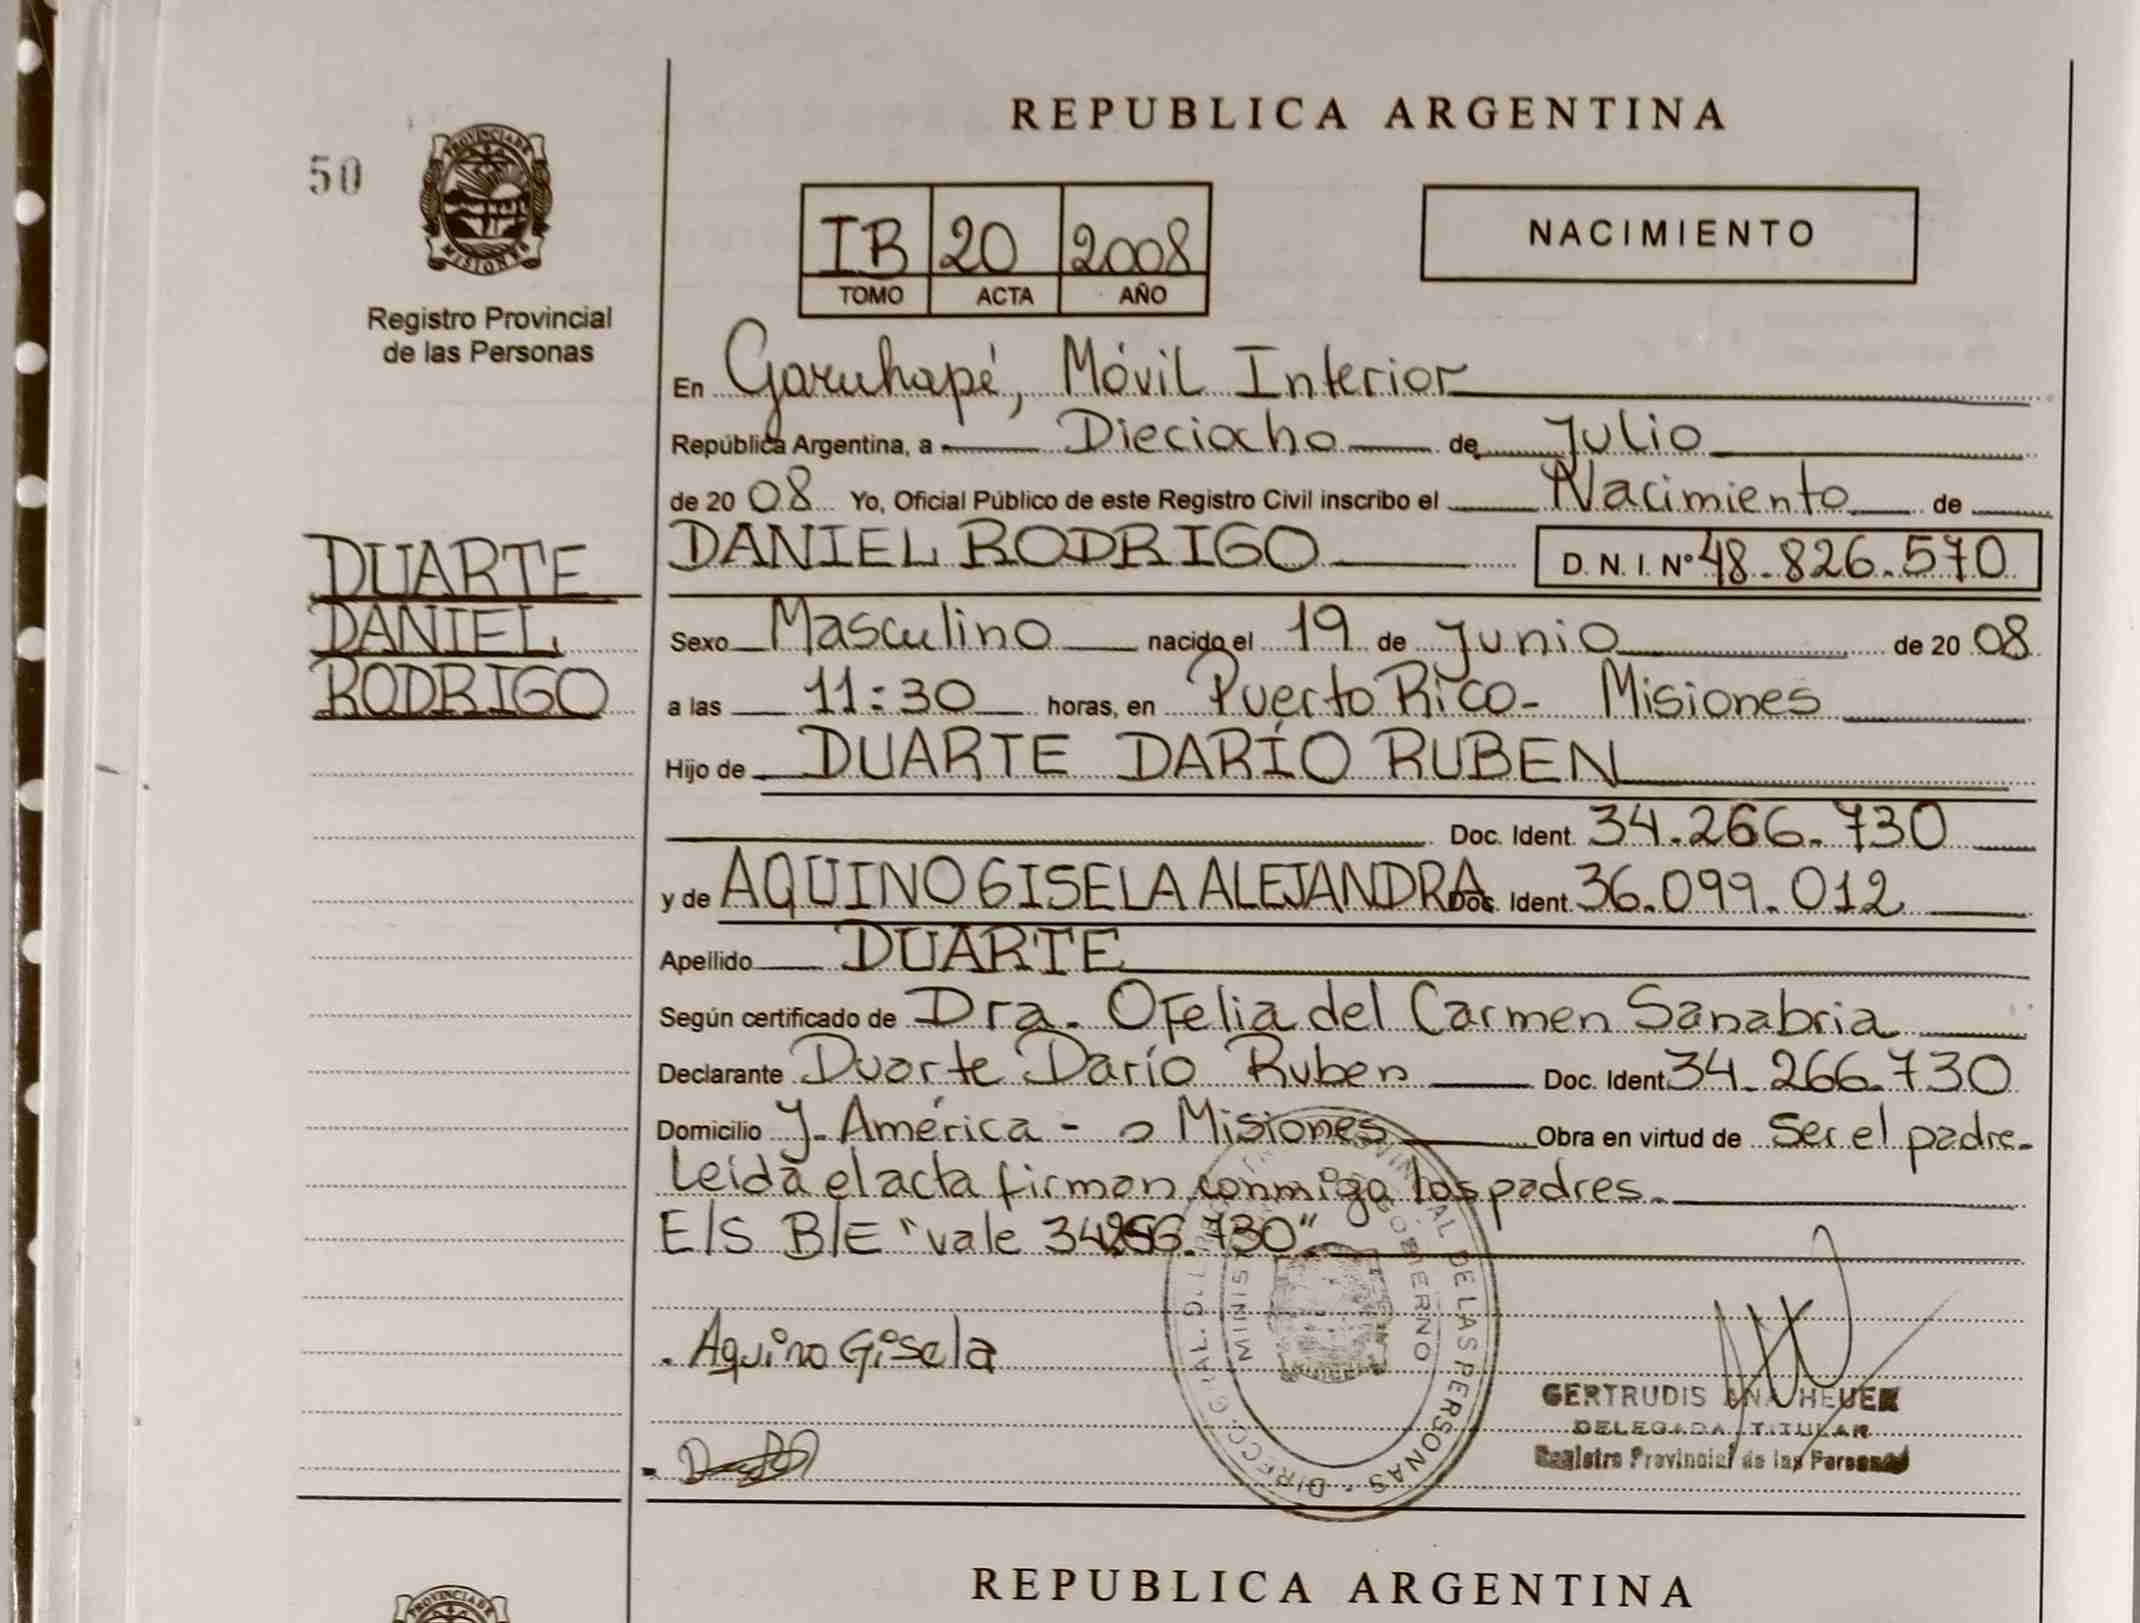 REPUBLICA ARGENTINA
50
PROVINCIA DE
MISIONES
Registro Provincial
de las Personas
IB 20 2008
TOMO ACTA AÑO
NACIMIENTO
En Garuhapé, Móvil Interior
República Argentina, a Dieciocho de Julio
de 2008 Yo, Oficial Público de este Registro Civil inscribo el Nacimiento de
DUARTE
DANIEL
RODRIGO
DANIEL RODRIGO D. N. I. Nº 48.826.570
Sexo Masculino nacido el 19 de Junio de 2008
a las 11:30 horas, en Puerto Rico - Misiones
Hijo de DUARTE DARÍO RUBEN
Doc. Ident. 34.266.730
y de AQUINO GISELA ALEJANDRA Doc. Ident. 36.099.012
Apellido DUARTE
Según certificado de Dra. Ofelia del Carmen Sanabria
Declarante Duarte Darío Ruben Doc. Ident. 34.266.730
Domicilio J. América - Misiones Obra en virtud de Ser el padre.
Leída el acta firman conmigo los padres.
E/S B/E "vale 34. .730"
Aquino Gisela
GERTRUDIS ANA HEUER
DELEGADA TITULAR
Registro Provincial de las Personas
DE LAS PERSONAS
GOBIERNO
REPUBLICA ARGENTINA
PROVINCIA DE